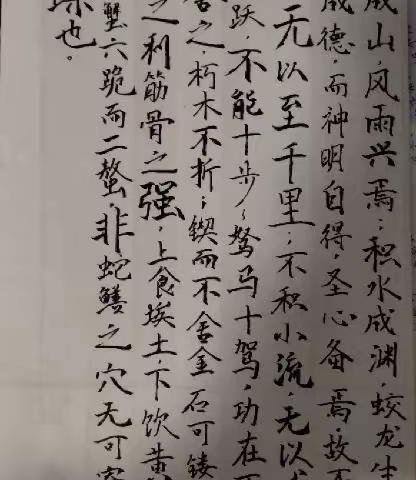 成山，风雨兴焉；积水成渊，蛟龙生
成德，而神明自得，圣心备焉，故不
无以至千里；不积小流，无以成
跃，不能十步；驽马十驾，功在不
舍之，朽木不折；锲而不舍金石可镂
之利筋骨之强，上食埃土，下饮黄
蟹六跪而二螯，非蛇鳝之穴无可寄
躁也。